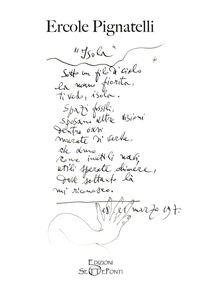 Ercole Pignatelli
"Isola"
Sotto un filo di cielo
la mano fiorita,
ti vedo, isola.
Spazi fossili,
sposano altre visioni
dentro oasi
murate di verde,
che amo
come inutili
utili sperate chimere,
dove soltanto la
mi riconosco.
marzo 197
EDIZIONI
SETTEPONTI